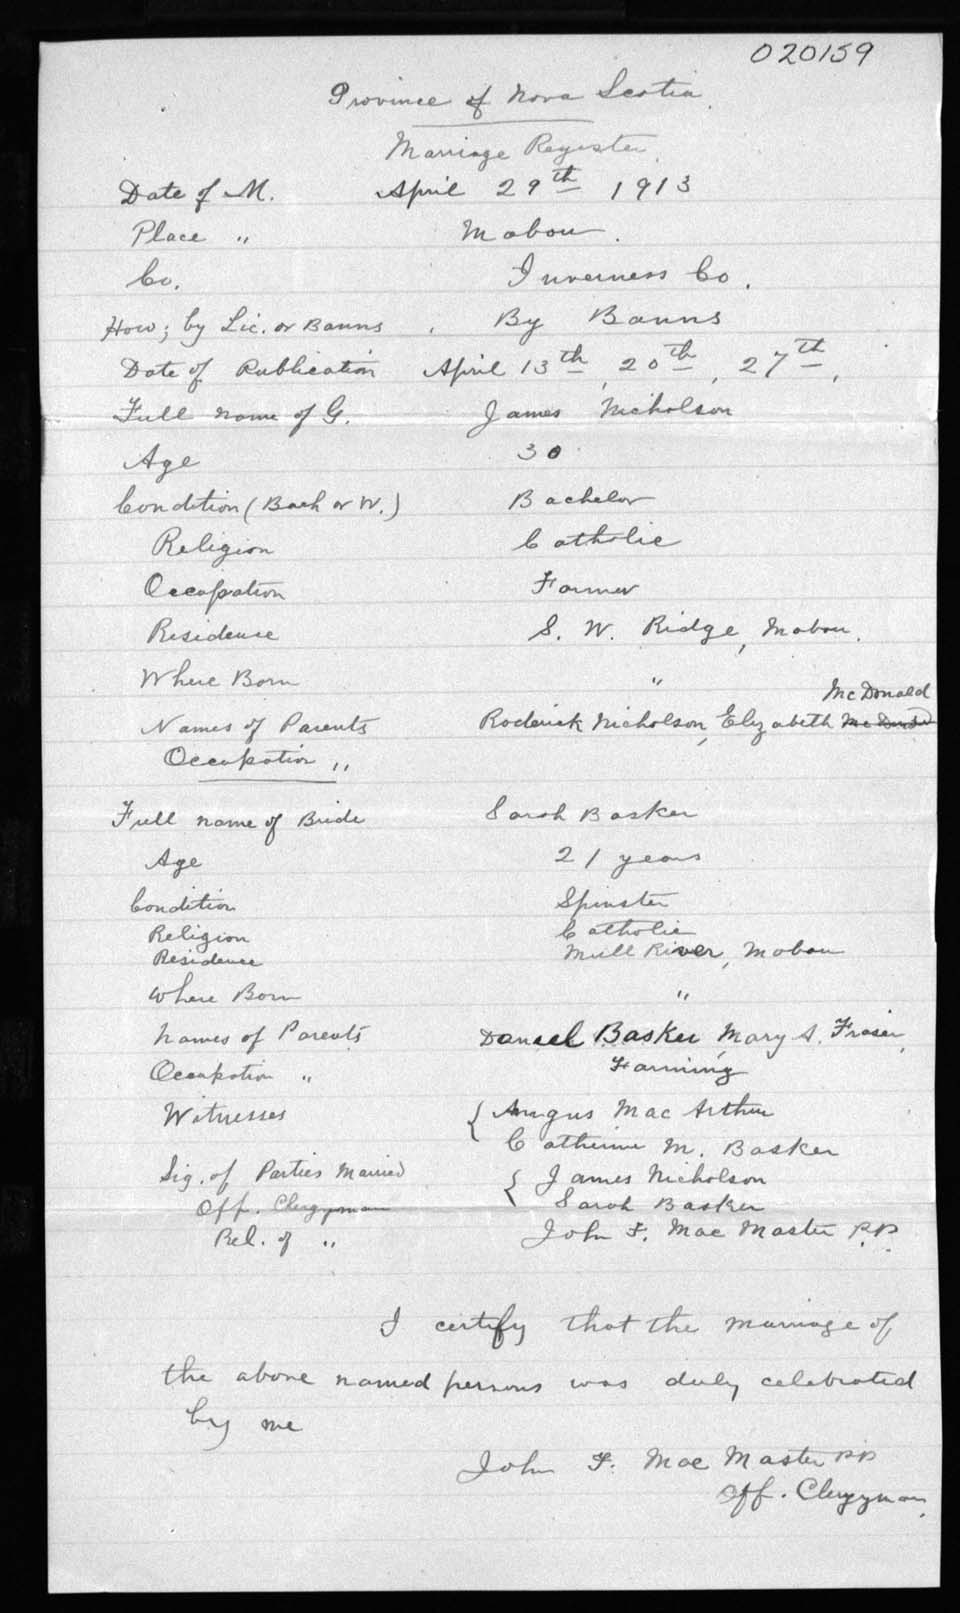 020159
Province of Nova Scotia
Marriage Register
Date of M. April 29th 1913
Place " Mabou.
Co. Inverness Co.
How; by Lic. or Banns. By Banns
Date of Publication April 13th, 20th, 27th,
Full name of G. James Nicholson
Age 30
Condition (Bach or W.) Bachelor
Religion Catholic
Occupation Farmer
Residence S. W. Ridge, Mabou.
Where Born "
McDonald
Names of Parents Roderick Nicholson, Elizabeth
Occupation "
Full name of Bride Sarah Basker
Age 21 years
Condition Spinster
Religion Catholic
Residence Mull River, Mabou
Where Born "
Names of Parents Daniel Basker, Mary A. Fraser,
Occupation " Farming
Witnesses { Angus Mac Arthur
Catherine M. Basker
Sig. of Parties Married { James Nicholson
Off. Clergyman Sarah Basker
Rel. of " John F. Mac Master P.P.
I certify that the marriage of
the above named persons was duly celebrated
by me
John F. Mac Master PP
Off. Clergyman.